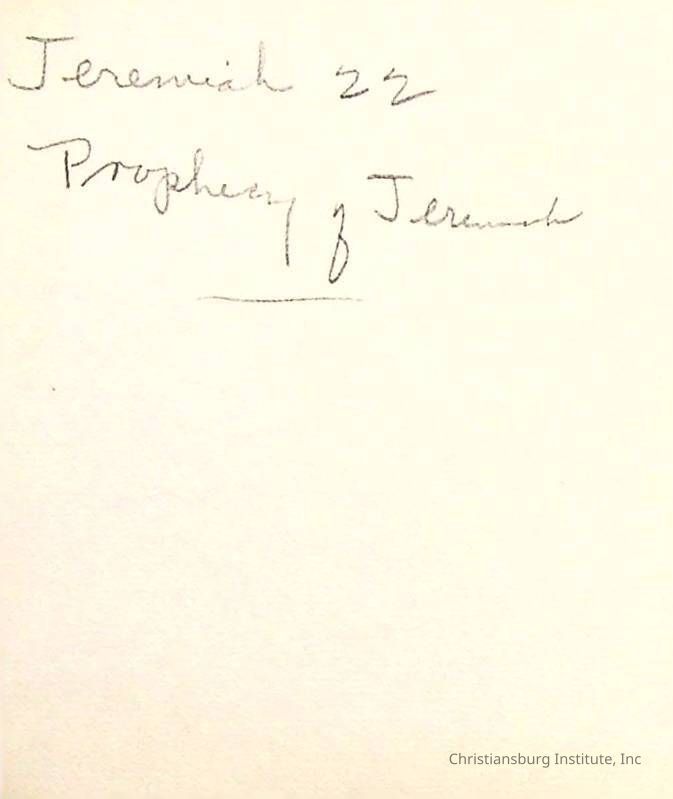 Jeremiah 22
Prophecy of Jeremiah
Christiansburg Institute, Inc